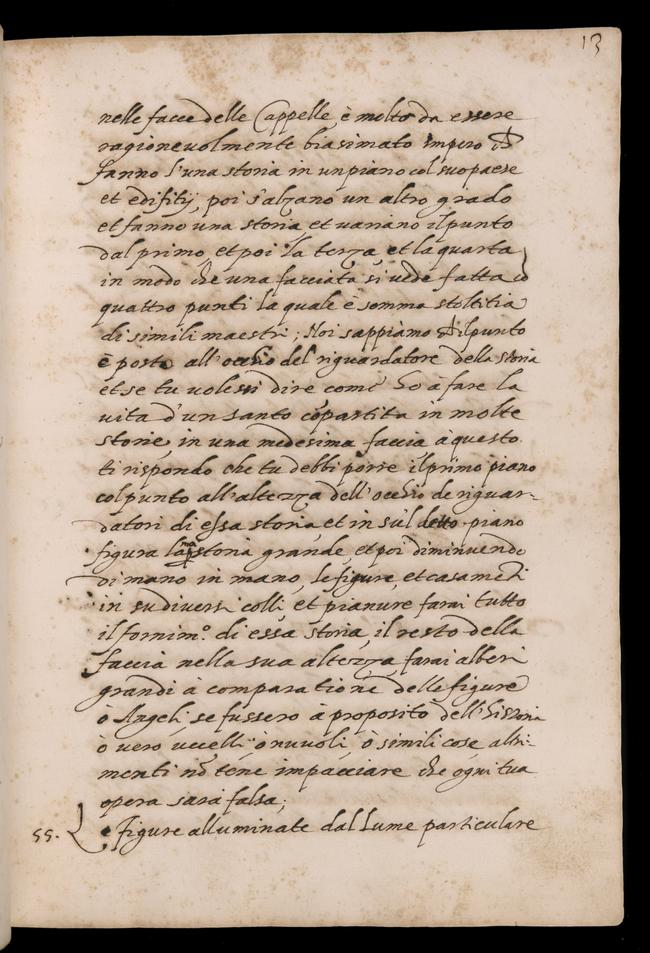 13
nelle facce delle Cappelle, è molto da essere
ragionevolmente biasimato impero
fanno l'una storia in un piano col suo paese
et edifitij, poi s'alzano un altro grado
et fanno una storia, et variano il punto
dal primo, et poi la terza, et la quarta
in modo che una facciata si vede fatta cō
quattro punti la quale è somma stoltitia
di simili maestri; Noi sappiamo ch'il punto
è posto all'occhio del riguardatore della storia
et se tu volessi dire come ho à fare la
vita d'un santo cōpartita in molte
storie, in una medesima faccia à questo
ti rispondo che tu debbi porre il primo piano
col punto all'altezza dell'occhio de riguar-
datori di essa storia, et in sul detto piano
figura la pma storia grande, et poi diminuendo
di mano in mano, le figure, et casamēti
in su diversi colli, et pianure farai tutto
il fornim.º di essa storia, il resto della
faccia nella sua altezza, farai alberi
grandi à comparatione delle figure
ò Angeli, se fussero à proposito dell'historia
ò vero uccelli, ò nuvoli, ò simili cose altri-
menti nō tene impacciare che ogni tua
opera sarà falsa;
55. Figure alluminate dal Lume particulare